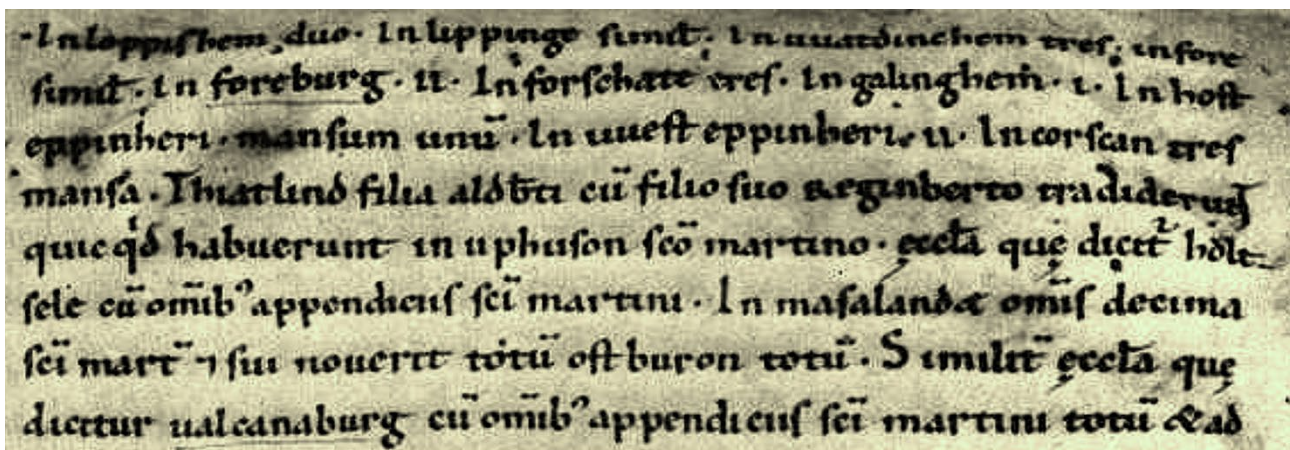 In loppishem, duo. In lippinge simil̄. In uuatdinchem tres. in fore
simil̄. In foreburg. ii. In forschate tres. In galinghem̄. i. In host
eppinheri. mansum unū. In uuest eppinheri. ii. In corscan tres
mansa. Thiatlind filia aldb̄ti cū filio suo Reginberto tradiderunt
quicqd̄ habuerunt in uphuson sc̄o martino. ęccl̄a quę dicit̄ holt
sele cū om̄ib' appendiciis sc̄i martini. In masalandæ om̄is decima
sc̄i mart̄ ⁊ sui nouerit totū ostburon totū. Similit̄ ęccl̄a quę
dicitur ualcanaburg cū om̄ib' appendiciis sc̄i martini totū & ad